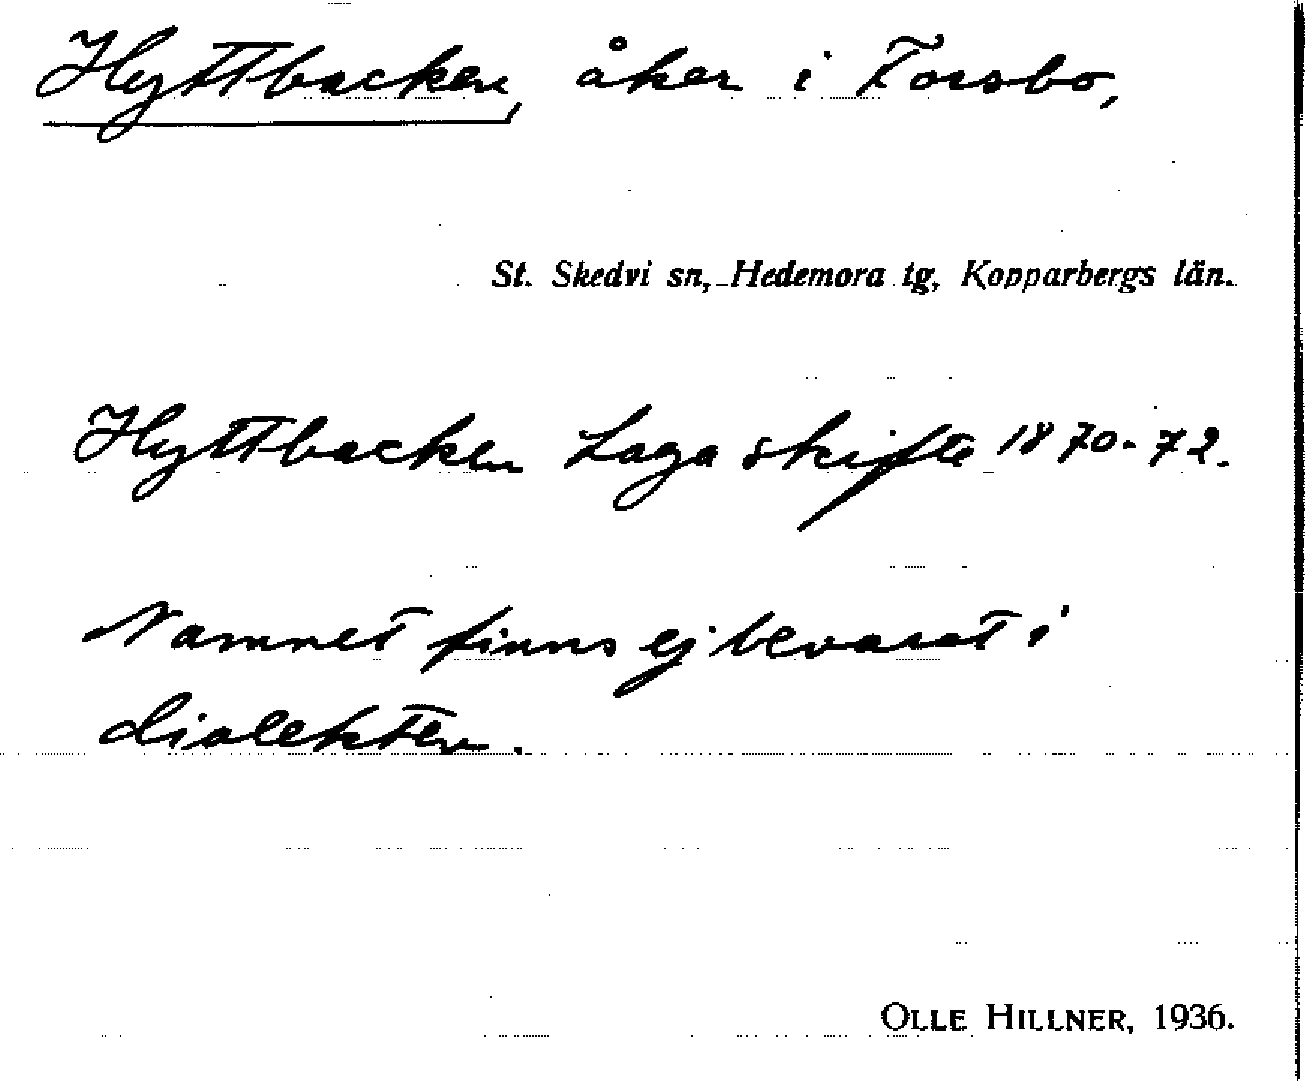 Hyttbacken, åker i Forsbo,
St. Skedvi sn, Hedemora tg, Kopparbergs län.
Hyttbacken Laga skifte 1870-72.
Namnet finns ej bevarat i
dialekten.
OLLE HILLNER, 1936.